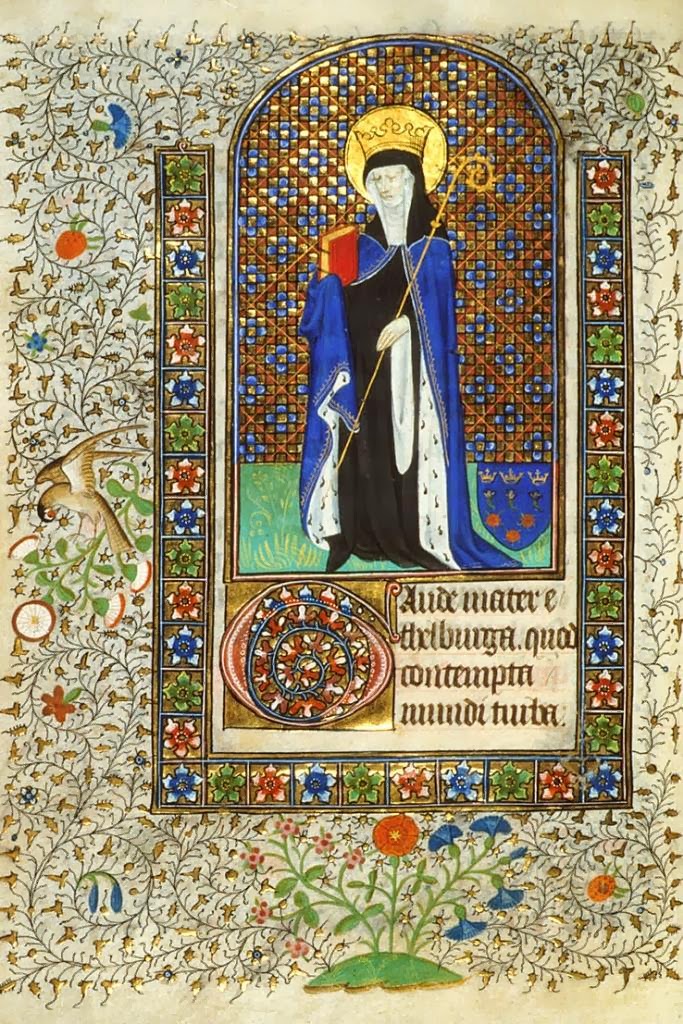 GAude mater e
thelburga. quod
contempta
mundi turba.